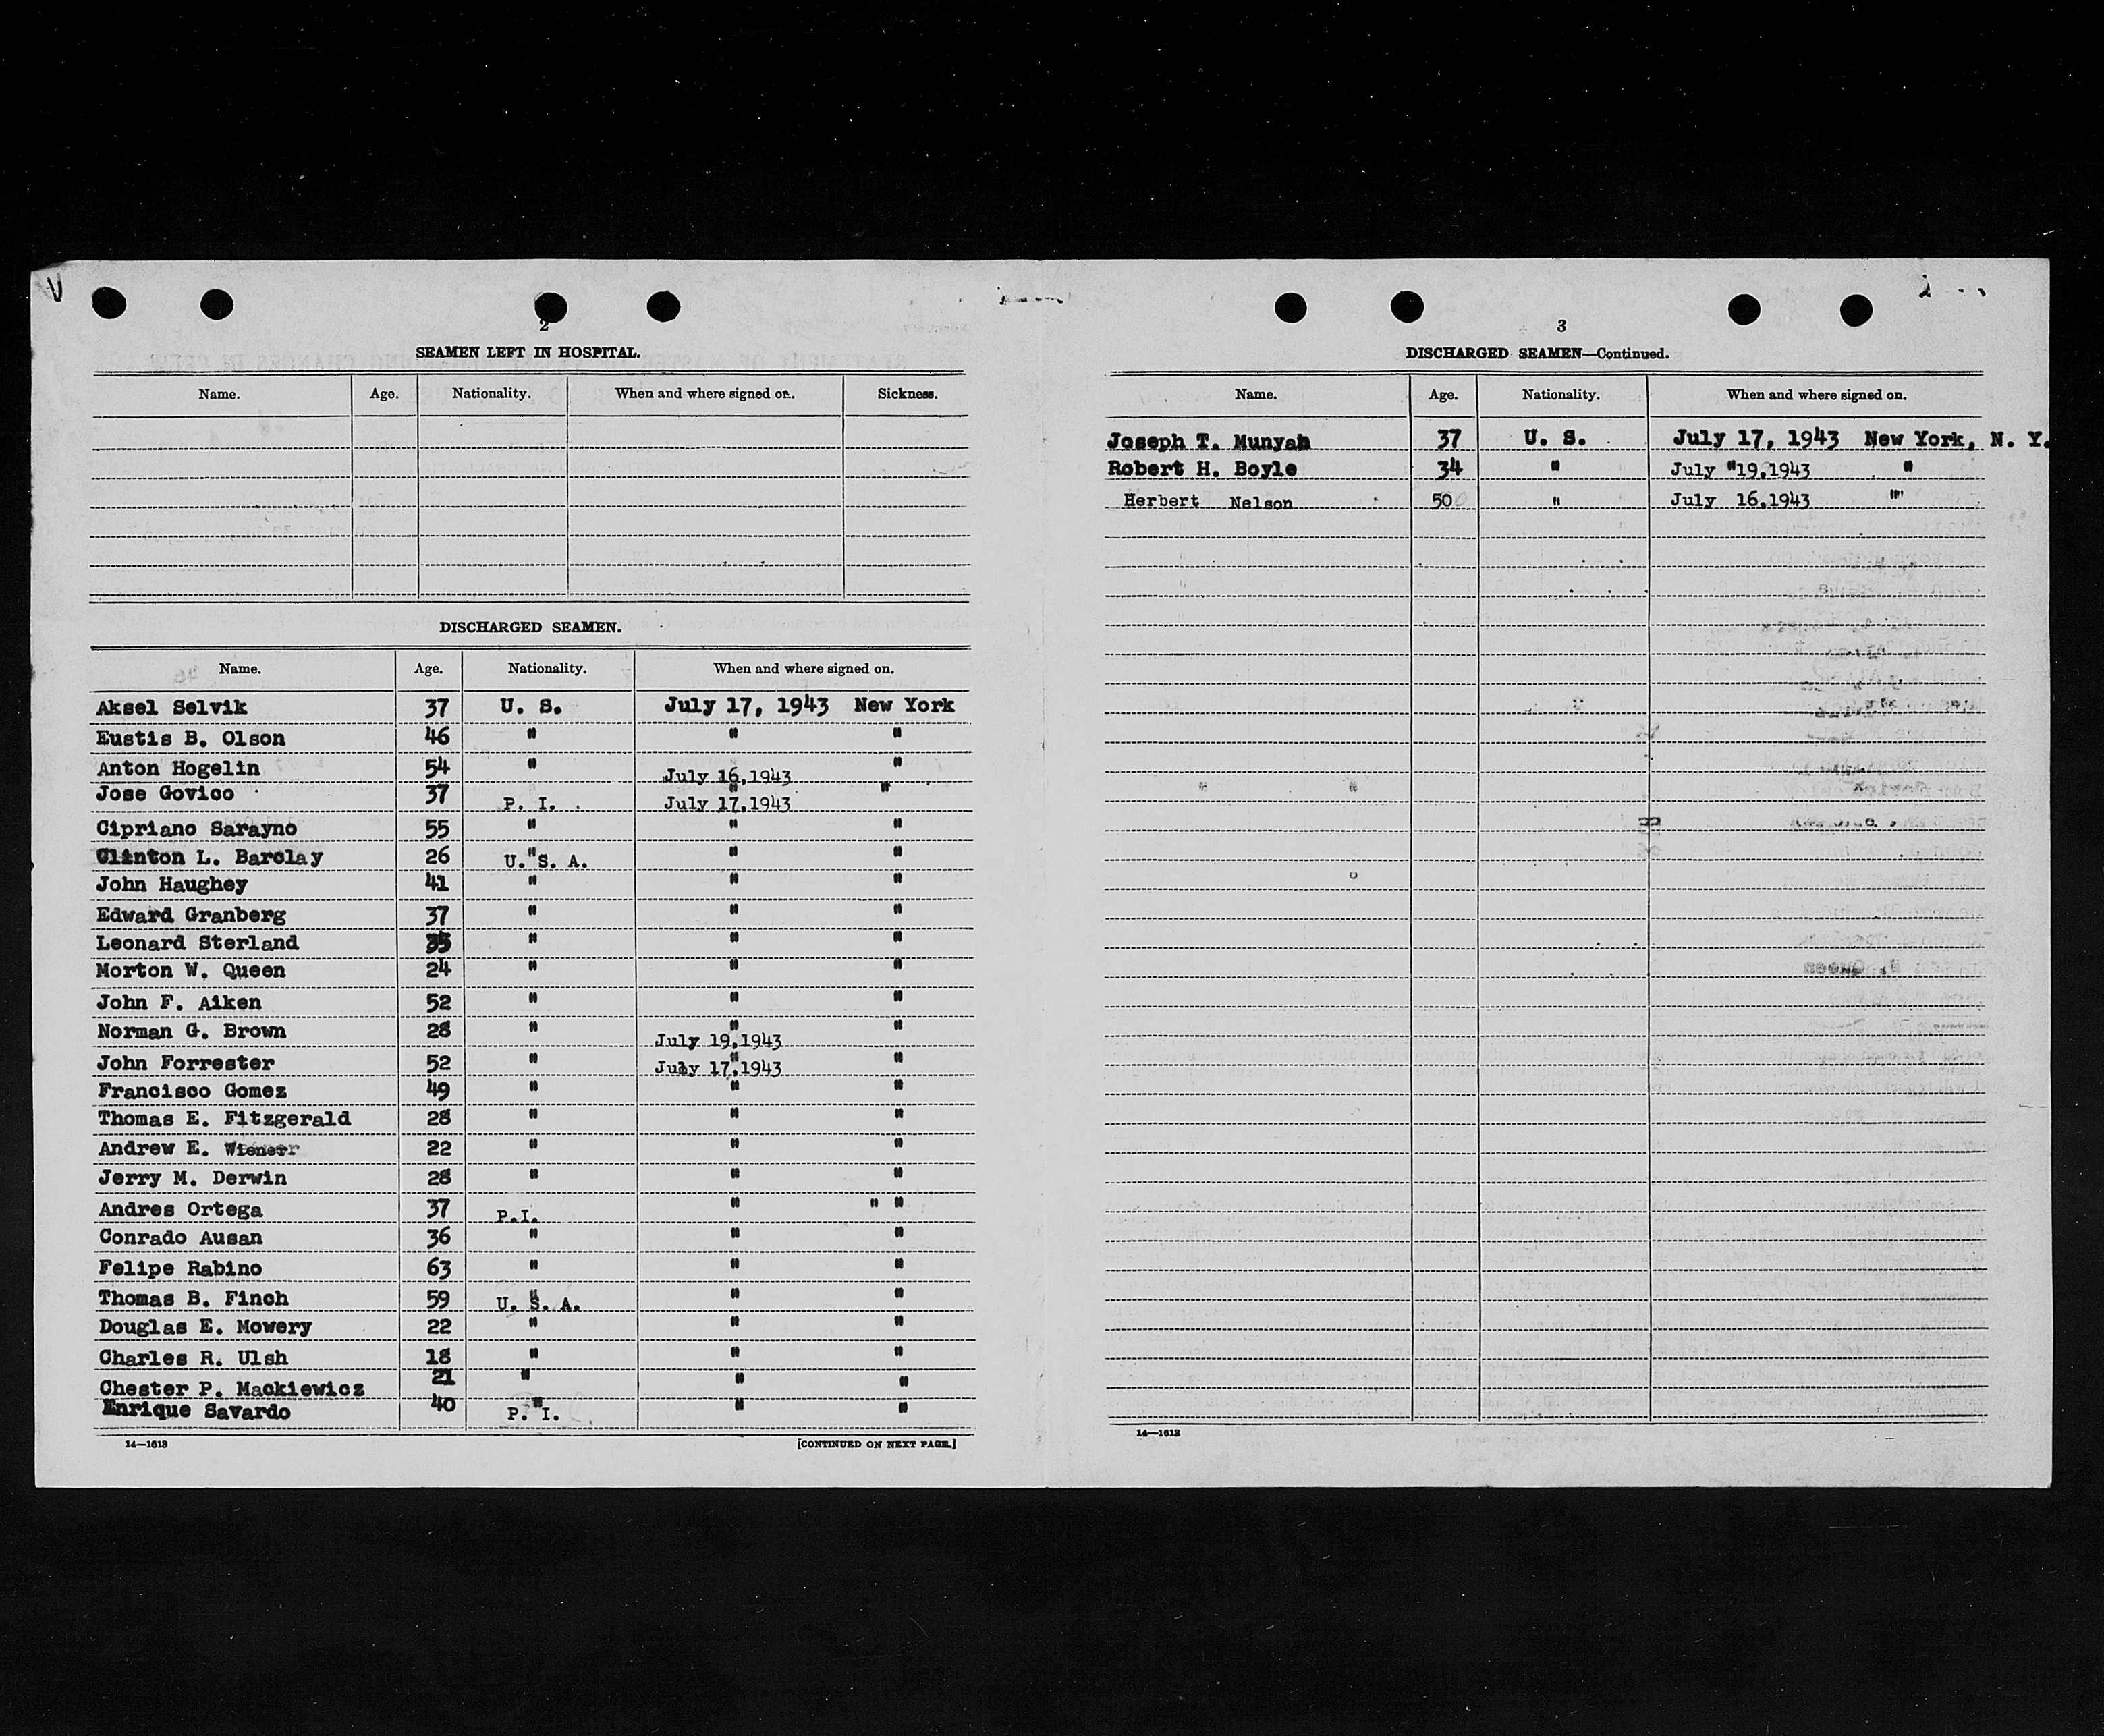 2
SEAMEN LEFT IN HOSPITAL.
Name. Age. Nationality. When and where signed on. Sickness.
DISCHARGED SEAMEN.
Name. Age. Nationality. When and where signed on.
Aksel Selvik 37 U. S. July 17, 1943 New York
Eustis B. Olson 46 " " "
Anton Hogelin 54 " July 16,1943 "
Jose Govico 37 P. I. " July 17,1943 "
Cipriano Sarayno 55 " " "
Clinton L. Barclay 26 U. S. A. " " "
John Haughey 41 " " "
Edward Granberg 37 " " "
Leonard Sterland 35 " " "
Morton W. Queen 24 " " "
John F. Aiken 52 " " "
Norman G. Brown 28 " " July 19,1943 "
John Forrester 52 " " July 17,1943 "
Francisco Gomez 49 " " "
Thomas E. Fitzgerald 28 " " "
Andrew E. 22 " " "
Jerry M. Derwin 28 " " "
Andres Ortega 37 P.I. " " "
Conrado Ausan 36 " " "
Felipe Rabino 63 " " "
Thomas B. Finch 59 U. S. A. " " "
Douglas E. Mowery 22 " " "
Charles R. Ulsh 18 " " "
Chester P. Mackiewicz 21 " " "
Enrique Savardo 40 P. I. " " "
14—1613 [CONTINUED ON NEXT PAGE.]
3
DISCHARGED SEAMEN—Continued.
Name. Age. Nationality. When and where signed on.
Joseph T. Munyan 37 U. S. July 17, 1943 New York, N. Y.
Robert H. Boyle 34 " July "19,1943 "
Herbert Nelson 50 " July 16,1943 "
14—1613